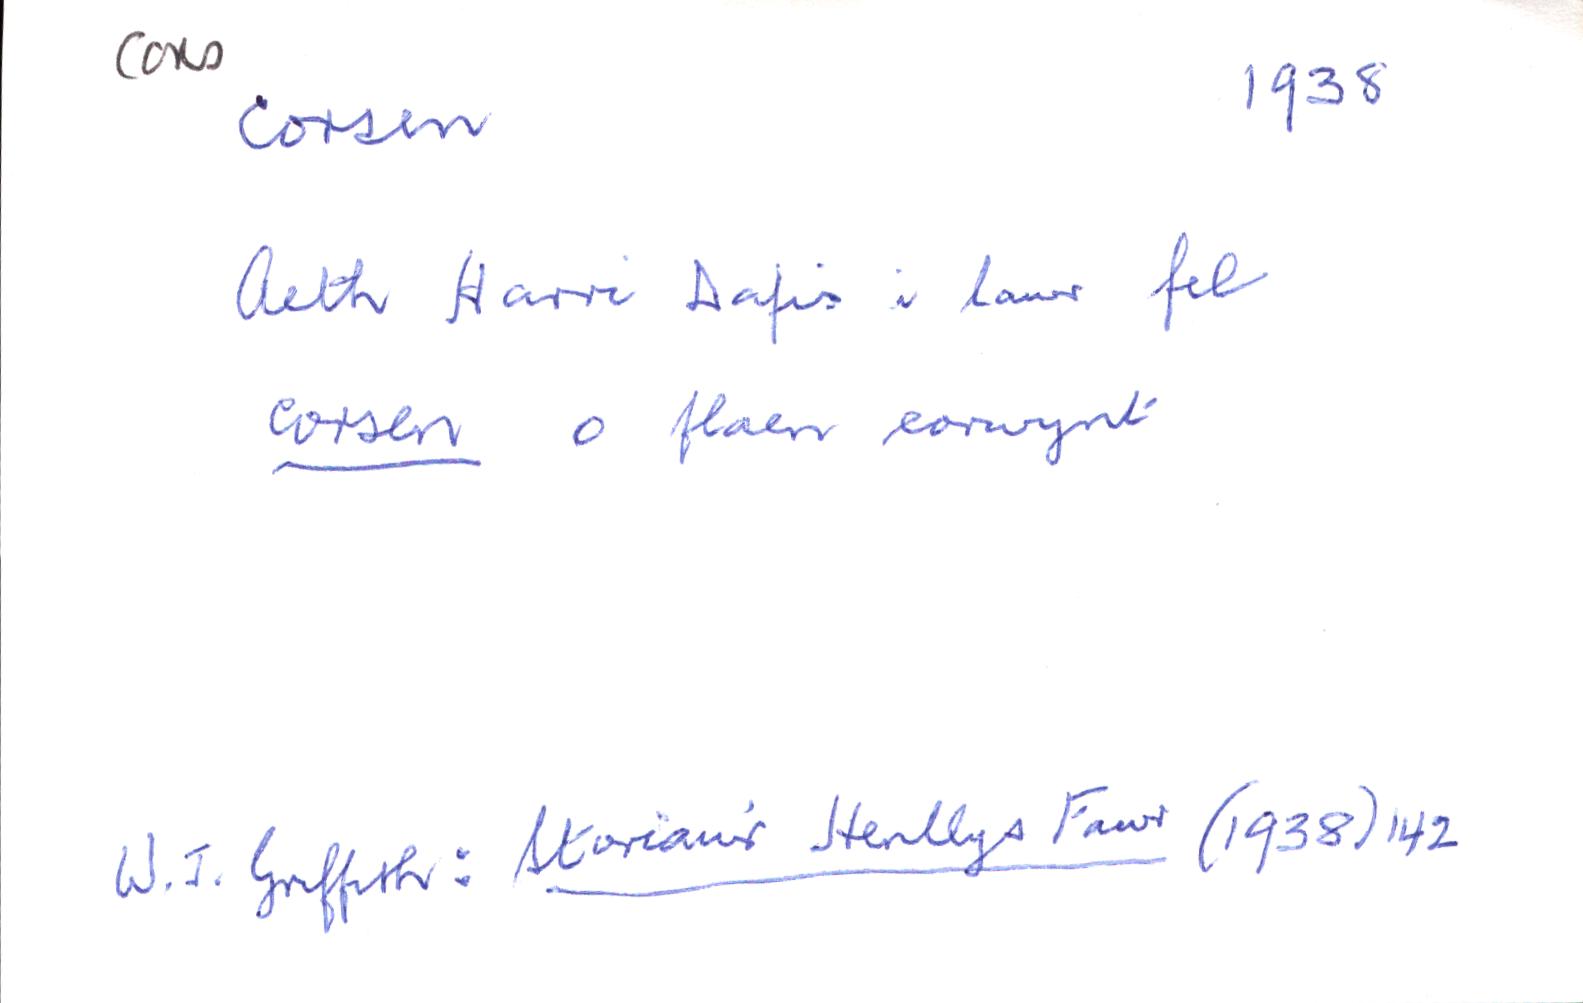 CORS
corsen 1938
Aeth Harri Dafis i lawr fel
corsen o flaen corwynt
W.J. Griffith: Storïau'r Henllys Fawr (1938) 142